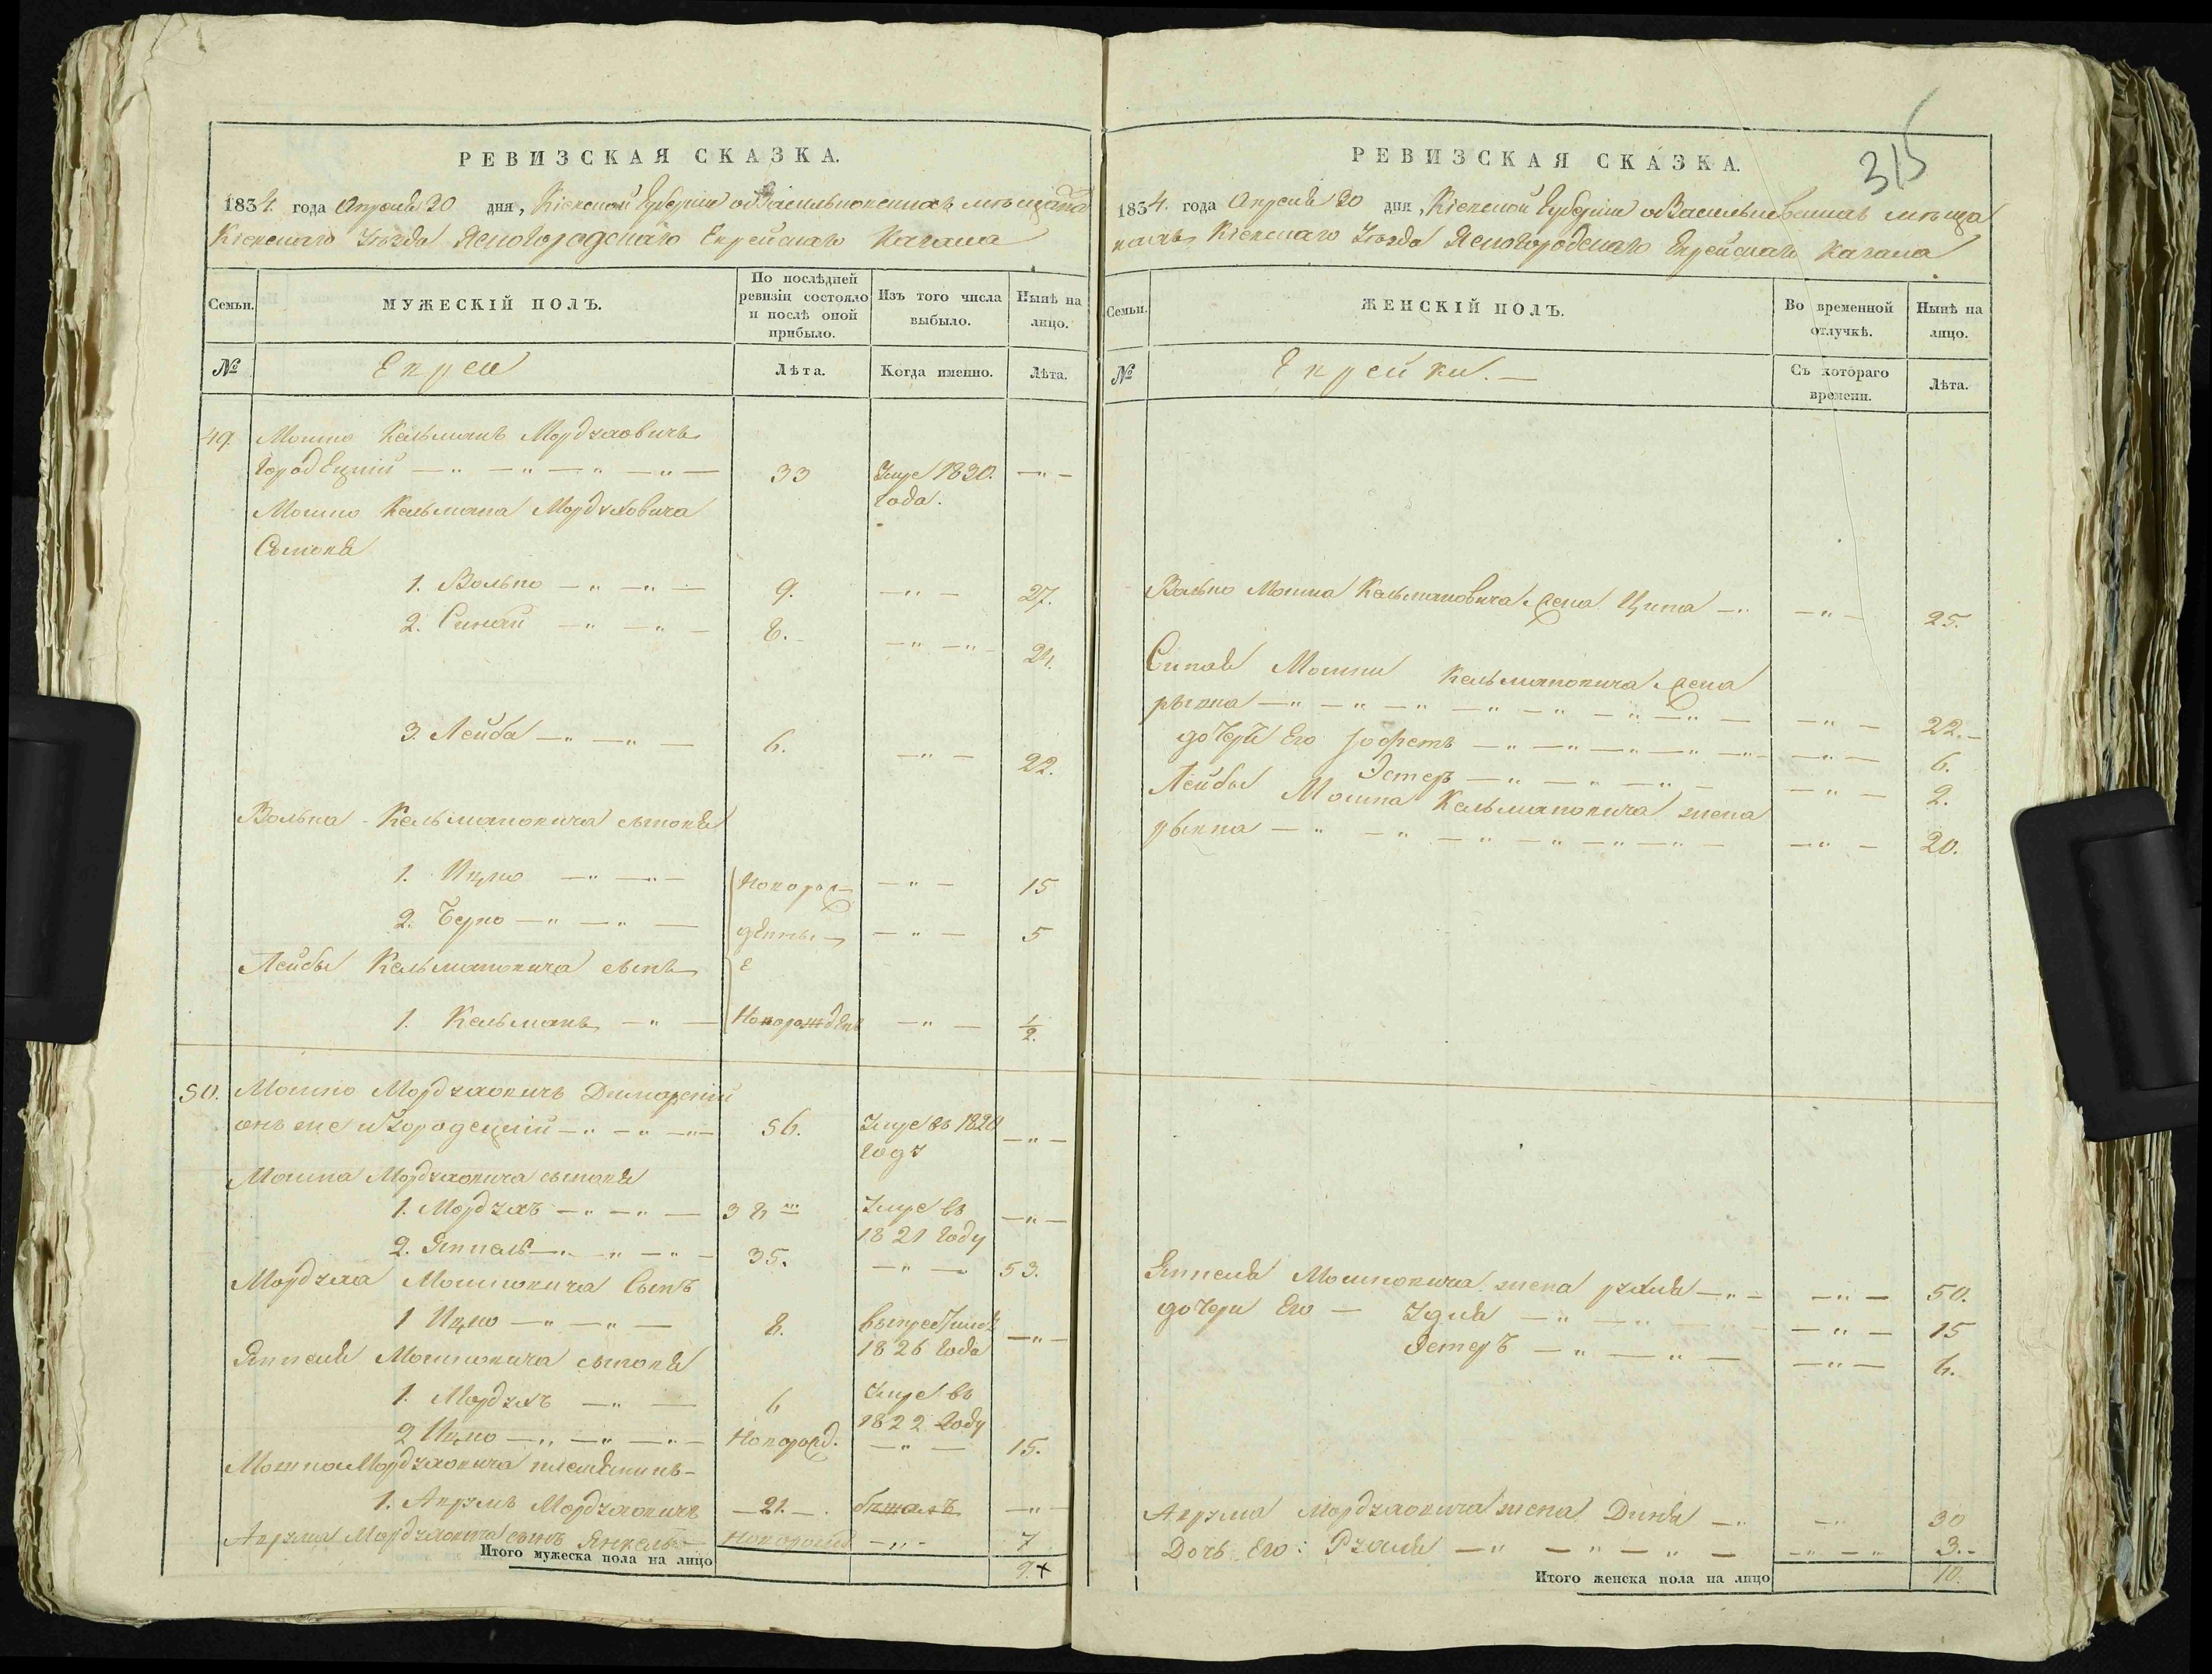 РЕВИЗСКАЯ СКАЗКА.
1834. года Апреля 20 дня, Кіевской Губерніи о Васильковскихъ мѣщана
Кіевскаго Уѣзда Ясногородскаго Еврейскаго Кагала
Семьи.
МУЖЕСКІЙ ПОЛЪ.
По послѣдней ревизіи состояло и послѣ оной прибыло.
Изъ того числа выбыло.
Нынѣ на лицо.
№
Евреи
Лѣта.
Когда именно.
Лѣта.
49. Мошко Кельманъ Мордхаовичъ
Городецкій — " — " — " — " — 33 Умре 1830. — " —
года.
Мошко Кельмана Мордховича
Сыновя
1. Волько — " — " — 9. — " — 27.
2. Синай — " — " — 8. — " — " — 24.
3. Лейба — " — " — 6. — " — 22.
Волька Кельмановича сыновя
1. Ицко — " — " — Новорож — " — 15
2. Берко — " — " — дѣнны — " — 5
Лейбы Кельмановича сынъ е
1. Кельманъ — " — Новорождѣнъ — " — 1/2.
50. Мошко Мордхаовичъ Димарскій
онъ же и Городецкій — " — " — " — 56. Умре въ 1820 — " —
году
Мошка Мордхаовича сыновя
1. Мордхъ — " — " — 38 Умре въ — " —
1821 году
2. Янкель — " — " — " — 35. — " — 53.
Мордхаа Мошковича сынъ
1 Ицко — " — " — 8. — " —
1826 года
Янкеля Мошковича сыновя
1. Мордхъ — " — 6 Умре въ
1822 году
2 Ицко — " — " — " — Новорожд. — " — 15.
Мошко Мордхаовича племянникъ —
1. Аврумъ Мордхаовичъ — 21. — . бежалъ — " —
Аврума Мордхаовича сынъ Янкель — Новорожд — " — 7
Итого мужеска пола на лицо 9. +
315
РЕВИЗСКАЯ СКАЗКА.
1834. года Апреля 20 дня, Кіевской Губерніи о Васильковскихъ мѣща
нахъ Кіевскаго Уѣзда Ясногородскаго Еврейскаго Кагала
Семьи.
ЖЕНСКІЙ ПОЛЪ.
Во временной отлучкѣ.
Нынѣ на лицо.
№
Еврейки. —
Съ котораго времени.
Лѣта.
Волько Мошка Кельмановича жена Ципа — " — " — 25.
Синая Мошки Кельмановича жена
рывка — " — " — " — " — " — " — " — — " — 22. —
дочери Его — " — " — " — " — " — — " — 6.
Эстеръ — " — " — " — — " — 2.
Лейбы Мошка Кельмановича жена
рывка — " — " — " — " — " — " — — " — 20.
Янкеля Мошковича жена рухля — " — — " — 50.
дочери Его — Удля — " — " — — " — 15
Эстеръ — " — " — — " — 6.
Аврума Мордхаовича жена Диня — " — " 30
Дочь Его: Рхаля — " — " — " — — " — " 3. —
Итого женска пола на лицо 10.